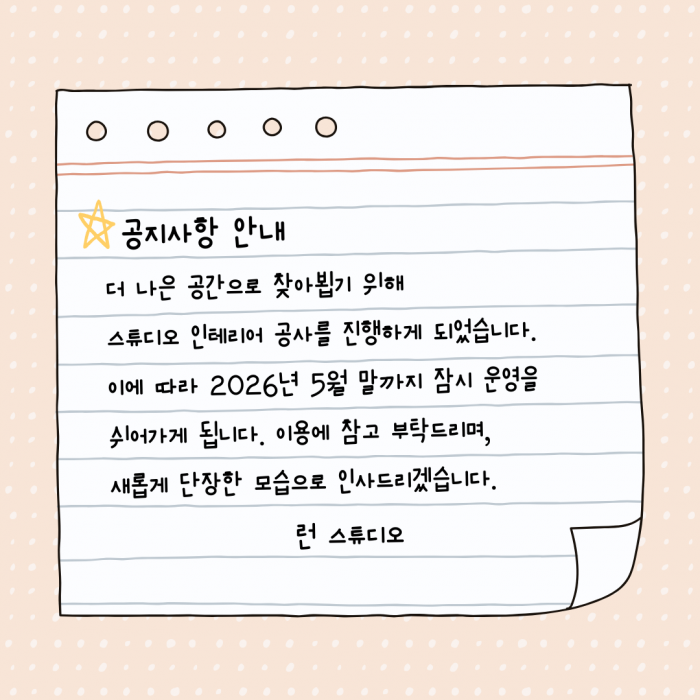 공지사항 안내
더 나은 공간으로 찾아뵙기 위해
스튜디오 인테리어 공사를 진행하게 되었습니다.
이에 따라 2026년 5월 말까지 잠시 운영을
쉬어가게 됩니다. 이용에 참고 부탁드리며,
새롭게 단장한 모습으로 인사드리겠습니다.
런 스튜디오